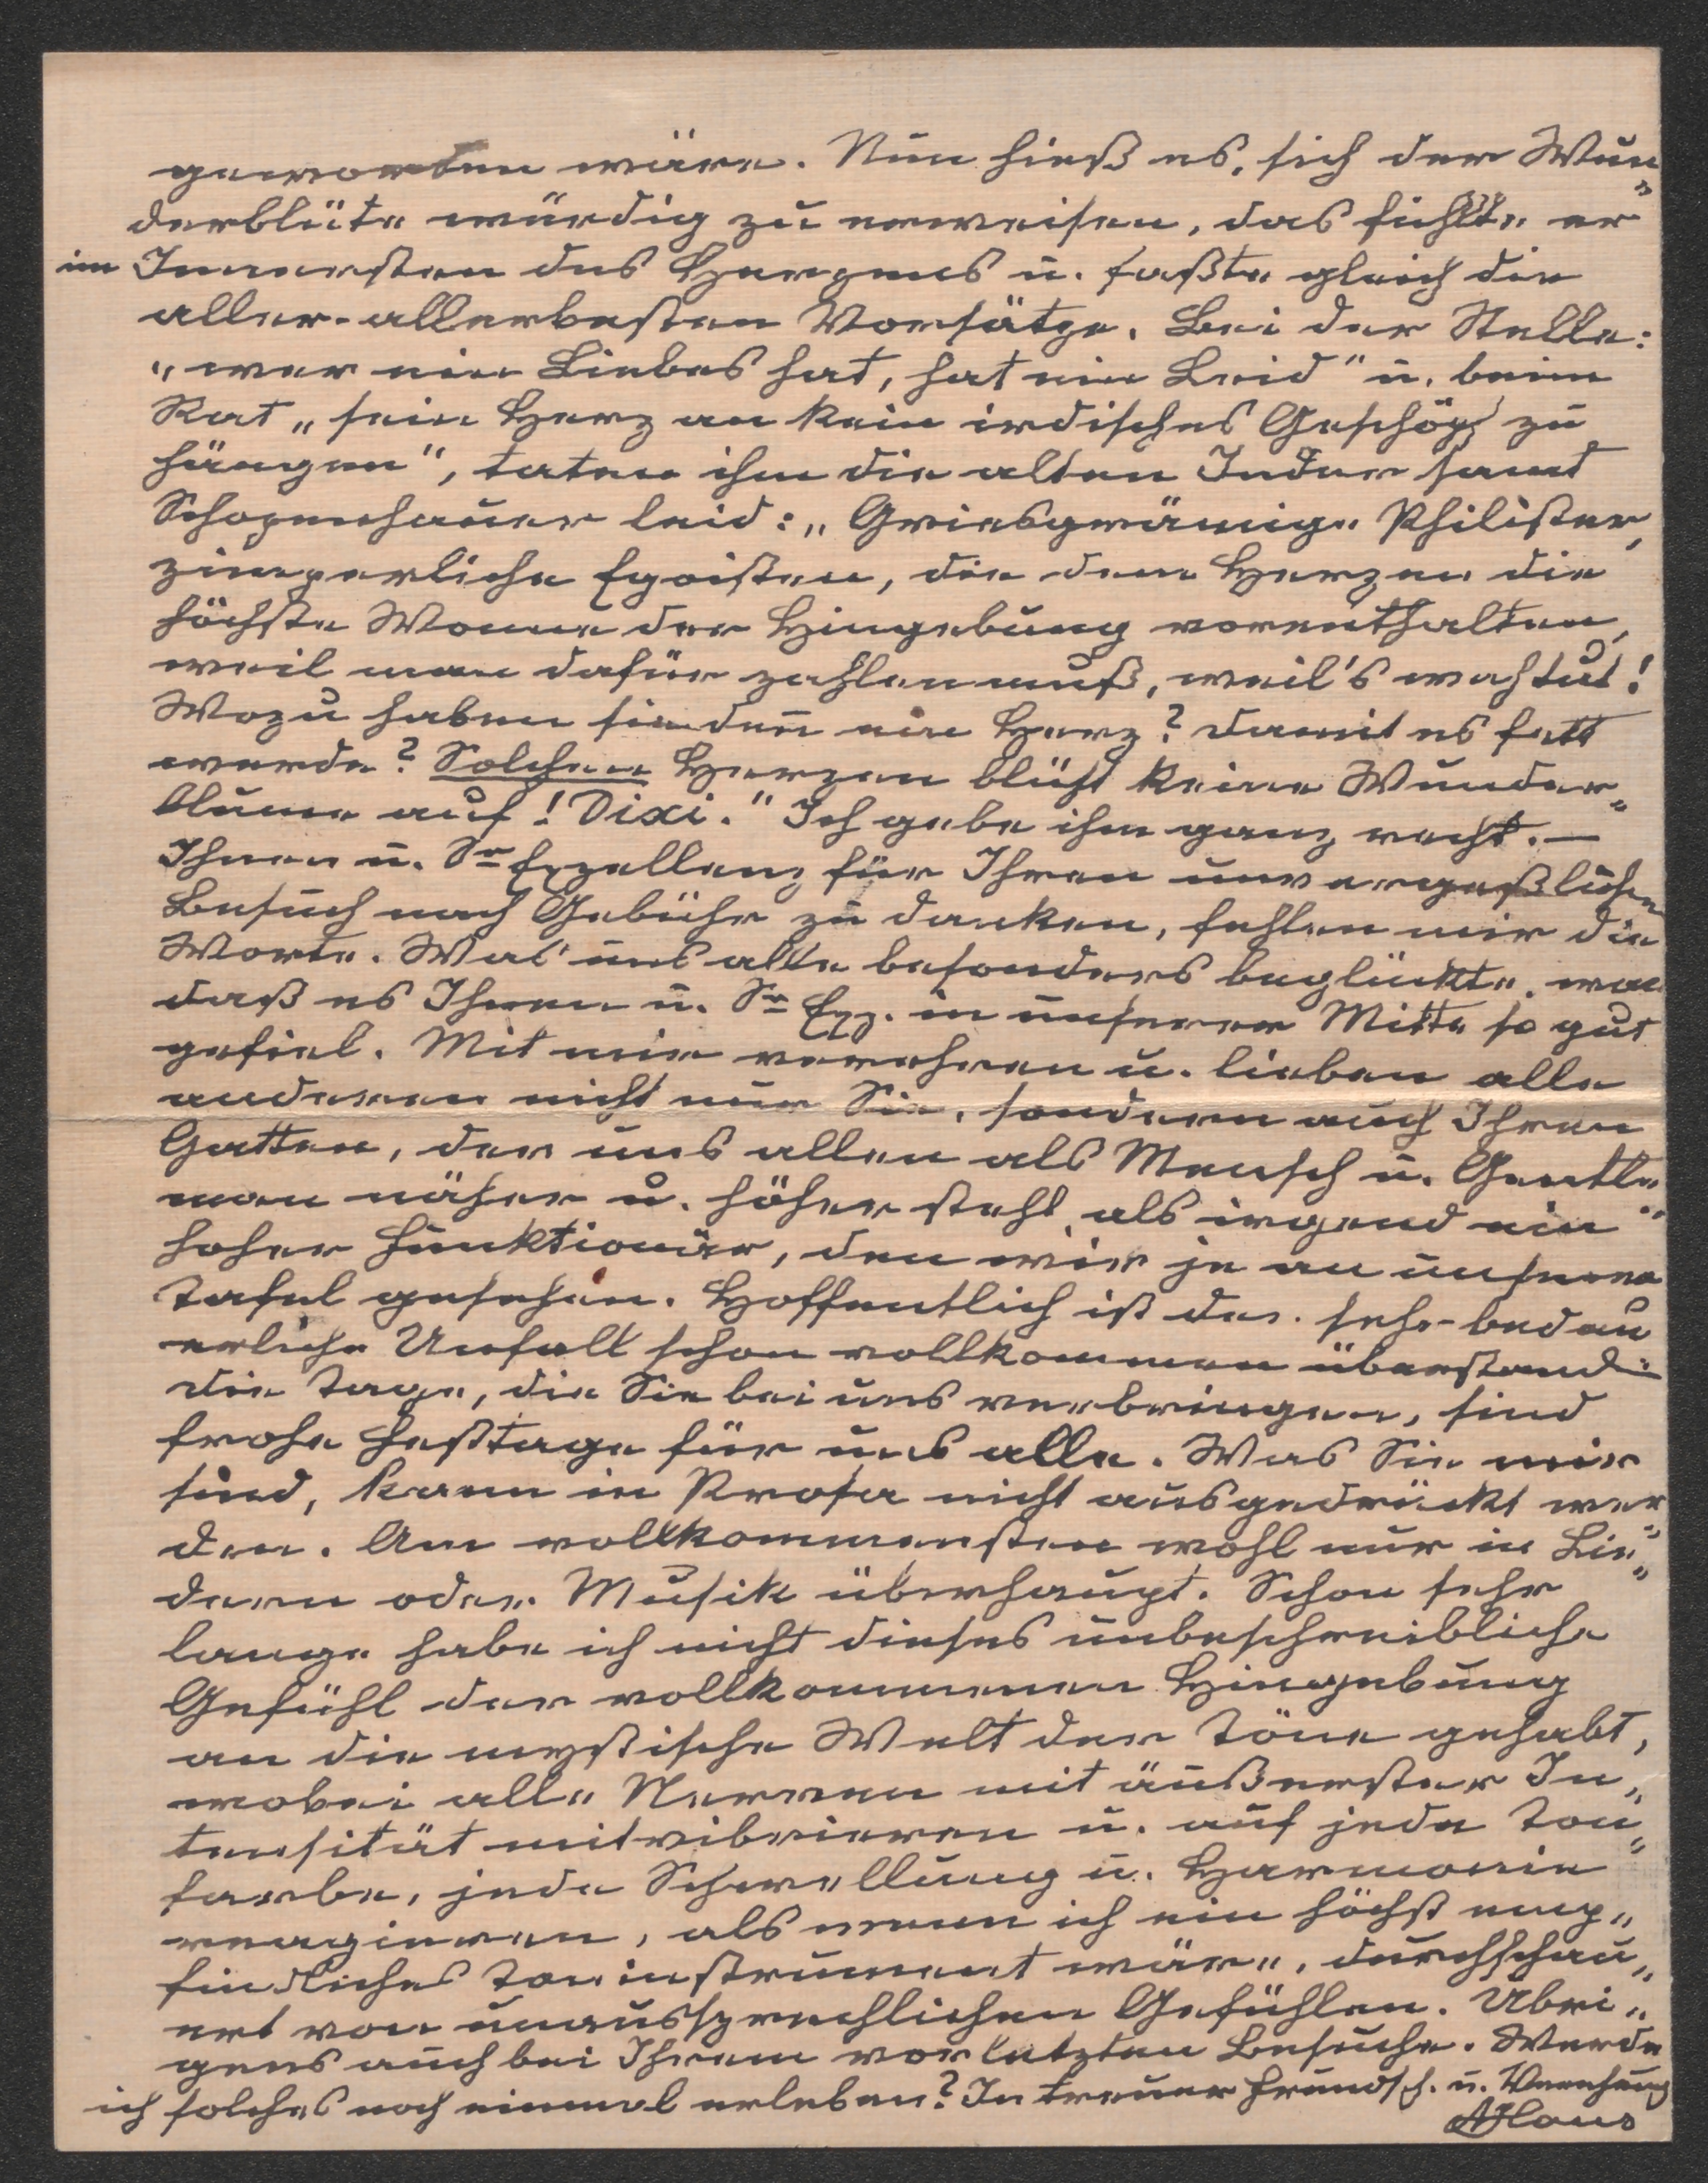 geworden wäre. Nun hieß es, sich der Wun„
derblüte würdig zu erweisen, das fühlte er
im Innersten des Herzens u. faßte gleich die
aller-allerbesten Vorsätze. Bei der Stelle:
„wer ein Liebes hat, hat ein Leid" u. beim
Rat „sein Herz an kein irdisches Geschöpf zu
hängen", taten ihm die alten Inder samt
Schopenhauer leid: „Griesgrämige Philister,
zimperliche Egoisten, die dem Herzen die
höchste Wonne der Hingebung vorenthalten,
weil man dafür zahlen muß, weil's weh tut!
Wozu haben sie den̄ ein Herz? Damit es fett
werde? Solchen Herzen blüht keine Wunder„
blume auf! Dixi." Ich gebe ihm ganz recht. —
Ihnen u. Sr Exzellenz für Ihren unvergeßlichen
Besuch nach Gebühr zu danken, fehlen mir die
Worte. Was uns alle besonders beglückte, war
daß es Ihnen u. Sr Exz. in unserer Mitte so gut
gefiel. Mit mir verehren u. lieben alle
anderen nicht nur Sie, sondern auch Ihren
Gatten, der uns allen als Mensch u. Gentle„
man näher u. höher steht, als irgend ein
hoher Funktionär, den wir je an unserer
Tafel gesehen. Hoffentlich ist der sehr bedau
erliche Unfall schon vollkommen überstanden
die Tage, die Sie bei uns verbringen, sind
frohe Festtage für uns alle. Was Sie mir
sind, kann in Prosa nicht ausgedrückt wer„
den. Am vollkommensten wohl nur in Lie„
dern oder Musik überhaupt. Schon sehr
lange habe ich nicht dieses unbeschreibliche
Gefühl der vollkommenen Hingebung
an die mystische Welt der Töne gehabt,
wobei alle Nerven mit äußerster In„
tensität mitvibrieren u. auf jede Ton„
farbe, jede Schwellung u. Harmonie
reagieren, als wenn ich ein höchst emp„
findliches Toninstrument wäre, durchschau„
ert von unaussprechlichen Gefühlen. Übri„
gens auch bei Ihrem vorletzten Besuche. Werde
ich solches noch einmal erleben? In treuer Freundsch. u. Verehrung
AHaus